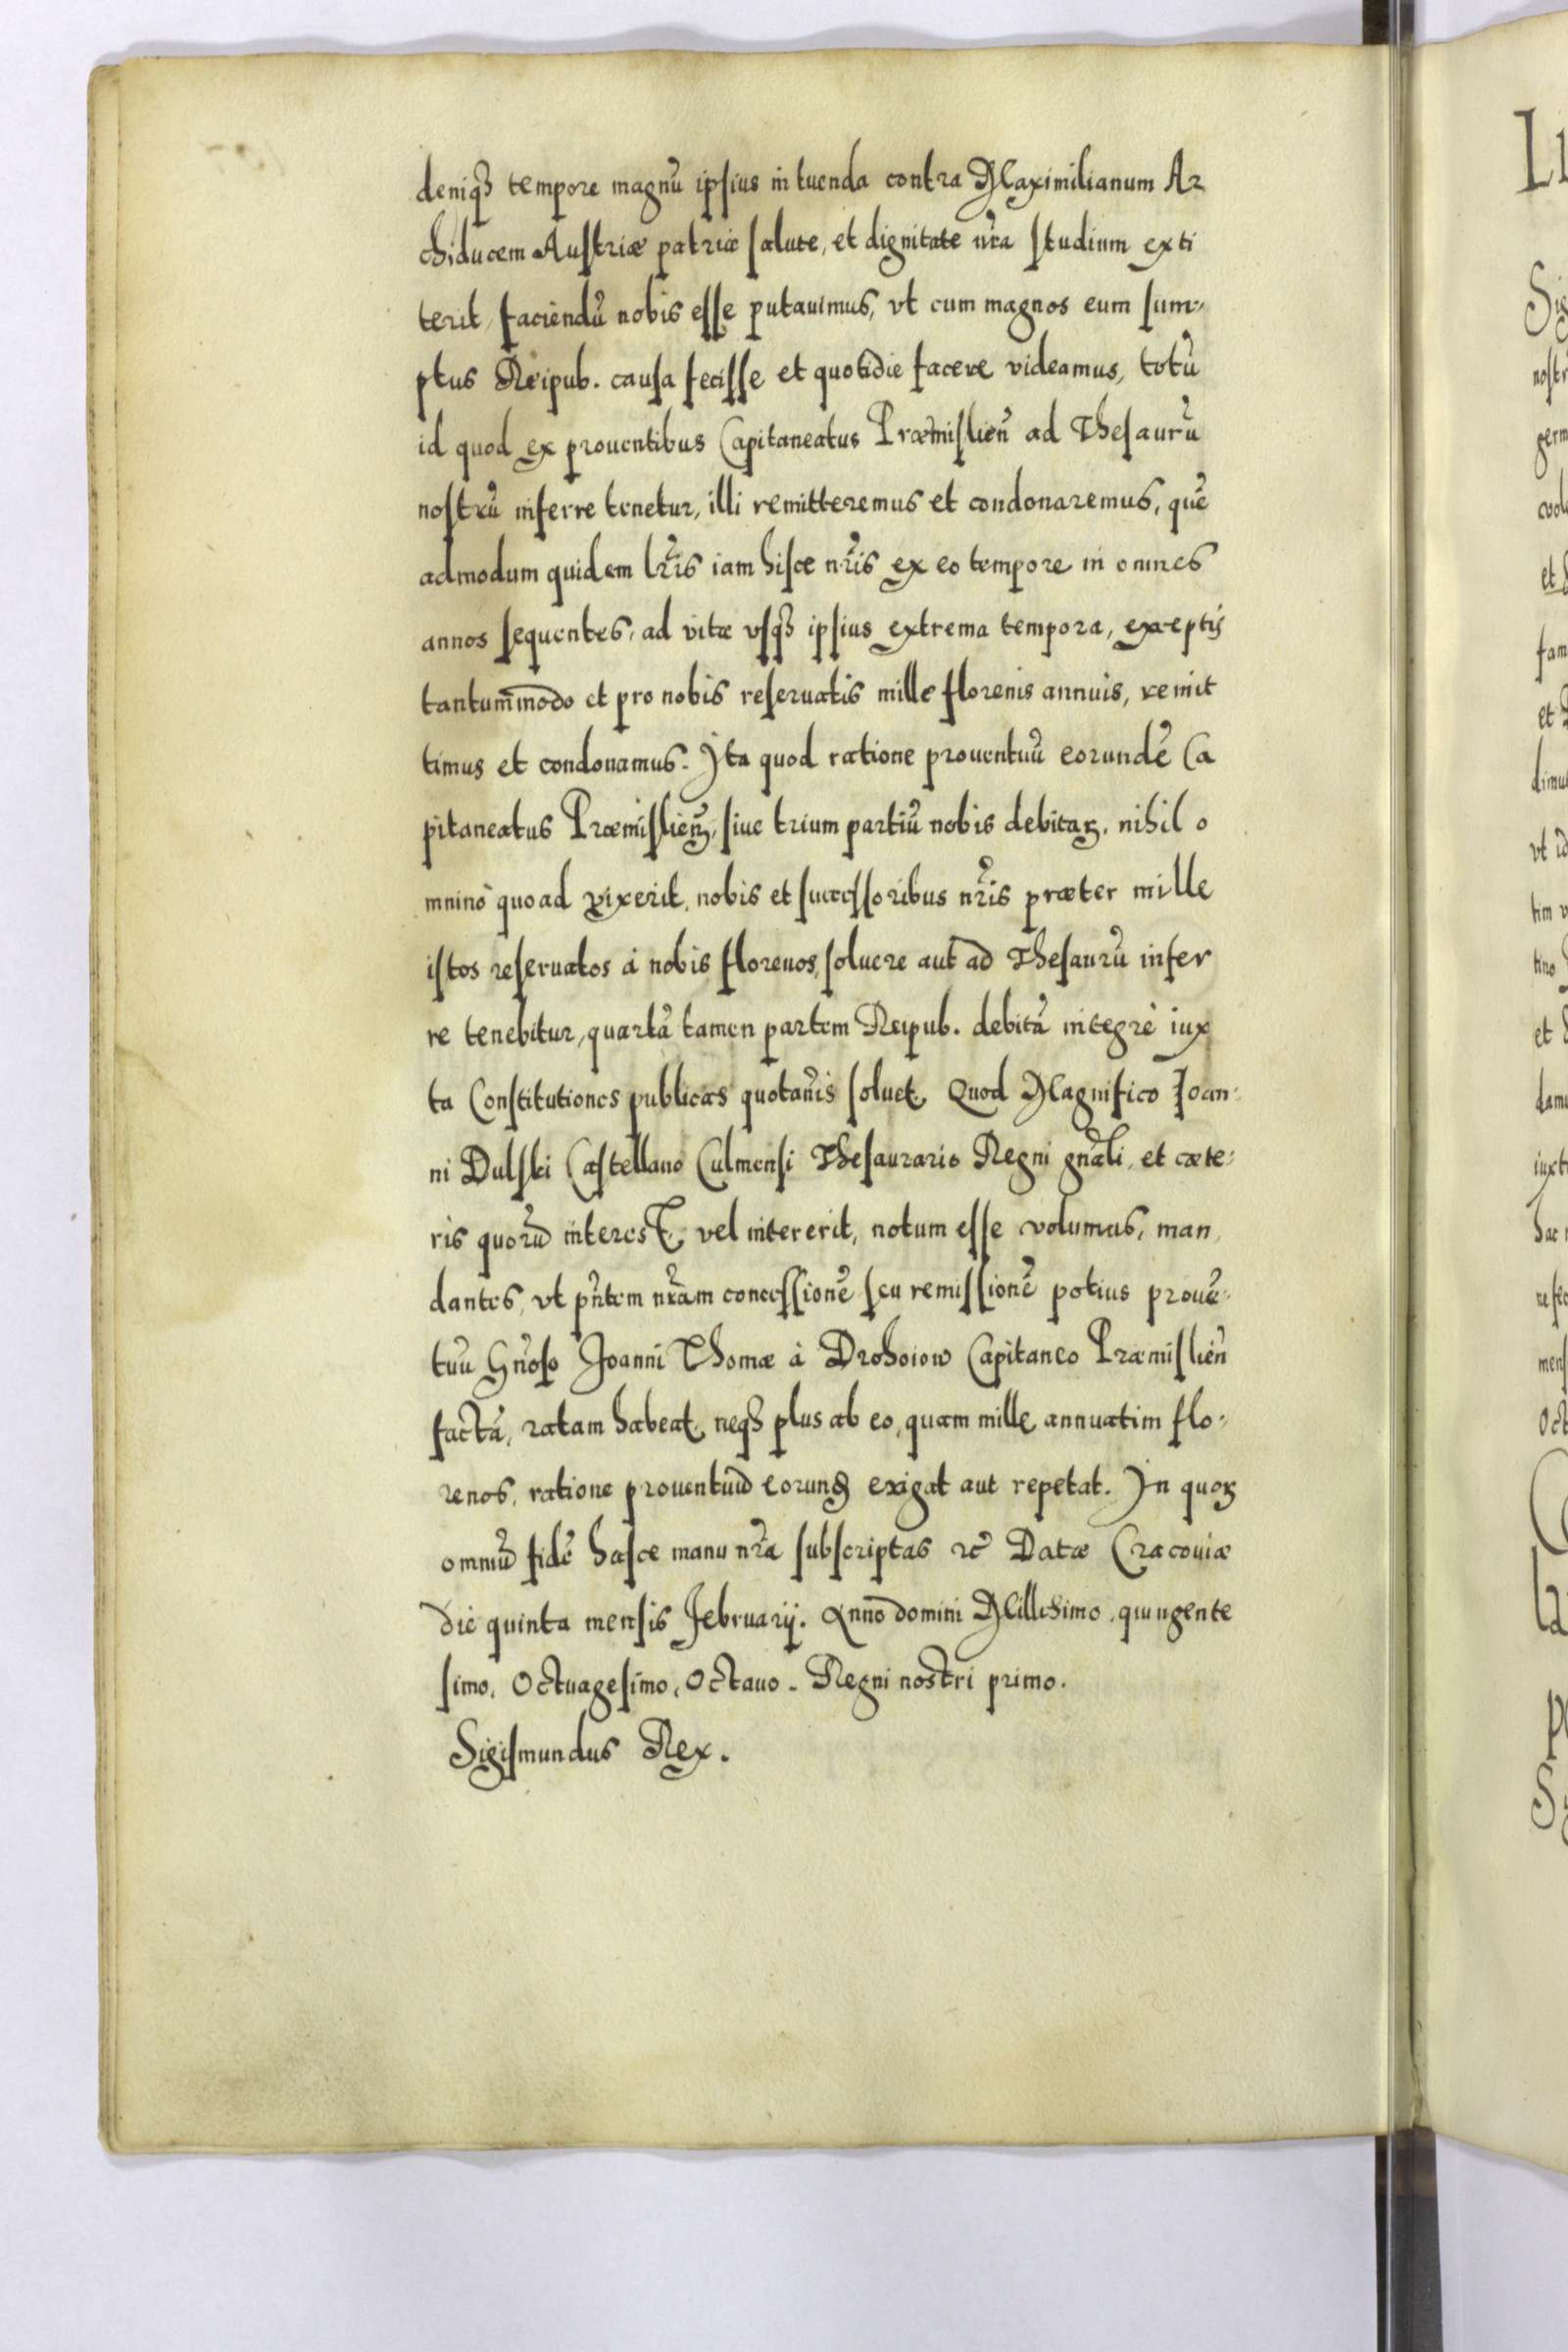 deniqꝫ tempore magnū ipsius in tuenda contra Maximilianum Ar
chiducem Austriæ patriæ salute, et dignitate nr̃a studium exti
terit, faciendū nobis esse putauimus, vt cum magnos eum sum-
ptus Reipub. causa fecisse et quotidie facere videamus, totū
id quod ex prouentibus Capitaneatus Præmislien̄ ad Thesaurū
nostrū inferre tenetur, illi remitteremus et condonaremus, quē
admodum quidem lr̃is iam hisce nr̃is ex eo tempore in omnes
annos sequentes, ad vitæ vsqꝫ ipsius extrema tempora, exceptis
tantum̄modo et pro nobis reseruatis mille florenis annuis, remit
timus et condonamus. Ita quod ratione prouentuū eorundē Ca
pitaneatus Præmislien̄, siue trium partiū nobis debitaꝝ, nihil o
mninò quoad vixerit, nobis et successoribus nr̃is præter mille
istos reseruatos à nobis florenos, soluere aut ad Thesaurū infer
re tenebitur, quartā tamen partem Reipub. debitā integrè iux
ta Constitutiones publicas quotan̄is soluet. Quod Magnifico Joan-
ni Dulski Castellano Culmensi Thesaurario Regni gn̄ali, et cæte-
ris quorū interest, vel intererit, notum esse volumus, man
dantes, vt pn̄tem nr̃am concessionē seu remissionē potius prouē-
tuū Gn̄oso Joanni Thomæ à Drohoiow Capitaneo Præmislien̄
factā, ratam habeat, neqꝫ plus ab eo, quam mille annuatim flo-
renos, ratione prouentuū eorundē exigat aut repetat. In quoꝝ
omniū fidē hasce manu nr̃a subscriptas ꝛc̄ Datæ Cracouiæ
die quinta mensis Februarij. Anno domini Millesimo, quingente
simo, Octuagesimo, Octauo. Regni nostri primo.
Sigismundus Rex.